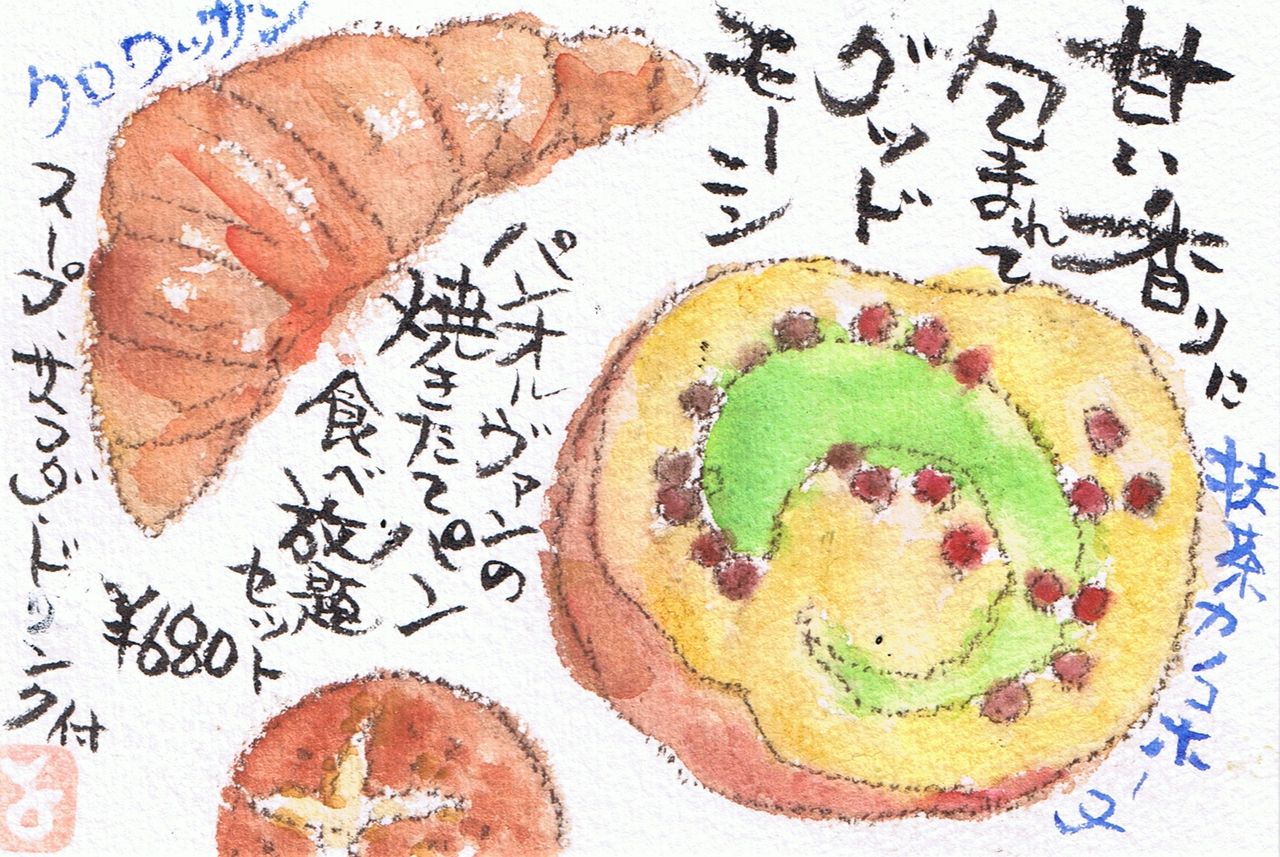 甘い香りに
包まれて
グッド
モーニン
抹茶
クロワッサン
パンオルヴァンの
焼きたてパン
食べ放題
セット
¥680
スープ、サラダ、ドリンク付